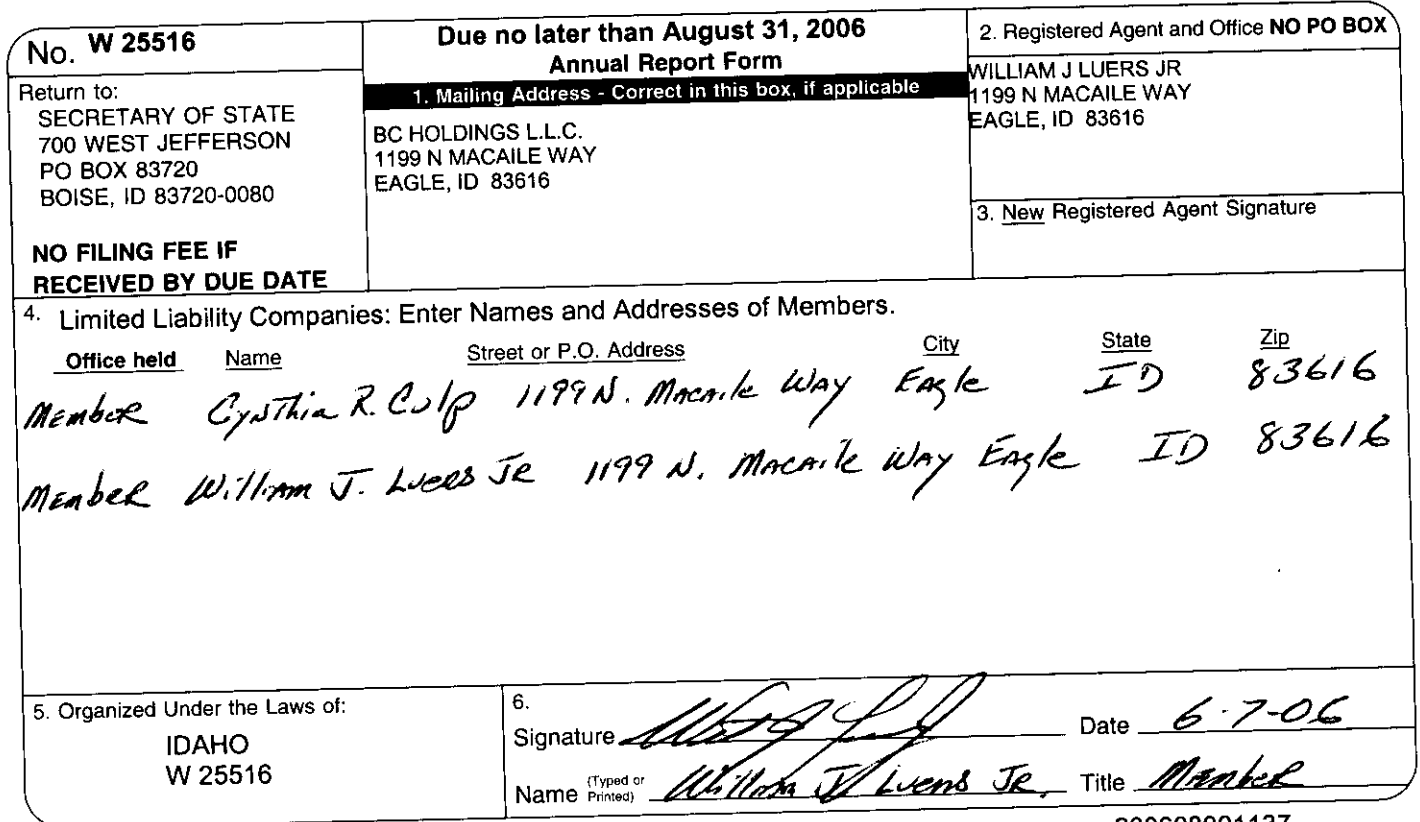 No. W 25516
Return to:
SECRETARY OF STATE
700 WEST JEFFERSON
PO BOX 83720
BOISE, ID 83720-0080
NO FILING FEE IF
RECEIVED BY DUE DATE
Due no later than August 31, 2006
Annual Report Form
1. Mailing Address - Correct in this box, if applicable
BC HOLDINGS L.L.C.
1199 N MACAILE WAY
EAGLE, ID 83616
2. Registered Agent and Office NO PO BOX
WILLIAM J LUERS JR
1199 N MACAILE WAY
EAGLE, ID 83616
3. New Registered Agent Signature
4. Limited Liability Companies: Enter Names and Addresses of Members.
Office held Name Street or P.O. Address City State Zip
Member Cynthia R. Culp 1199 N. Macaile Way Eagle ID 83616
Member William J. Luers Jr 1199 N. Macaile Way Eagle ID 83616
5. Organized Under the Laws of:
IDAHO
W 25516
6.
Signature Date 6-7-06
Name (Typed or Printed) William J Luers Jr. Title Member